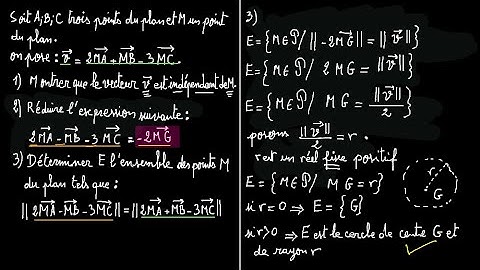 Soit A;B;C trois points du plan et M un point
du plan.
on pose : v⃗ = 2MA⃗ + MB⃗ - 3MC⃗
1) Montrer que le vecteur v⃗ est indépendant de M.
2) Réduire l'expression suivante :
2MA⃗ - MB⃗ - 3MC⃗ = -2MG⃗
3) Déterminer E l'ensemble des points M
du plan tels que :
||2MA⃗ - MB⃗ - 3MC⃗|| = ||2MA⃗ + MB⃗ - 3MC⃗||
3)
E = {M∈P / ||-2MG⃗|| = ||v⃗||}
E = {M∈P / 2MG = ||v⃗||}
E = {M∈P / MG = ||v⃗||/2}
posons ||v⃗||/2 = r.
r est un réel fixe positif
E = {M∈P / MG = r}
si r = 0 ⇒ E = {G}
r
G
si r>0 ⇒ E est le cercle de centre G et
de rayon r ✓